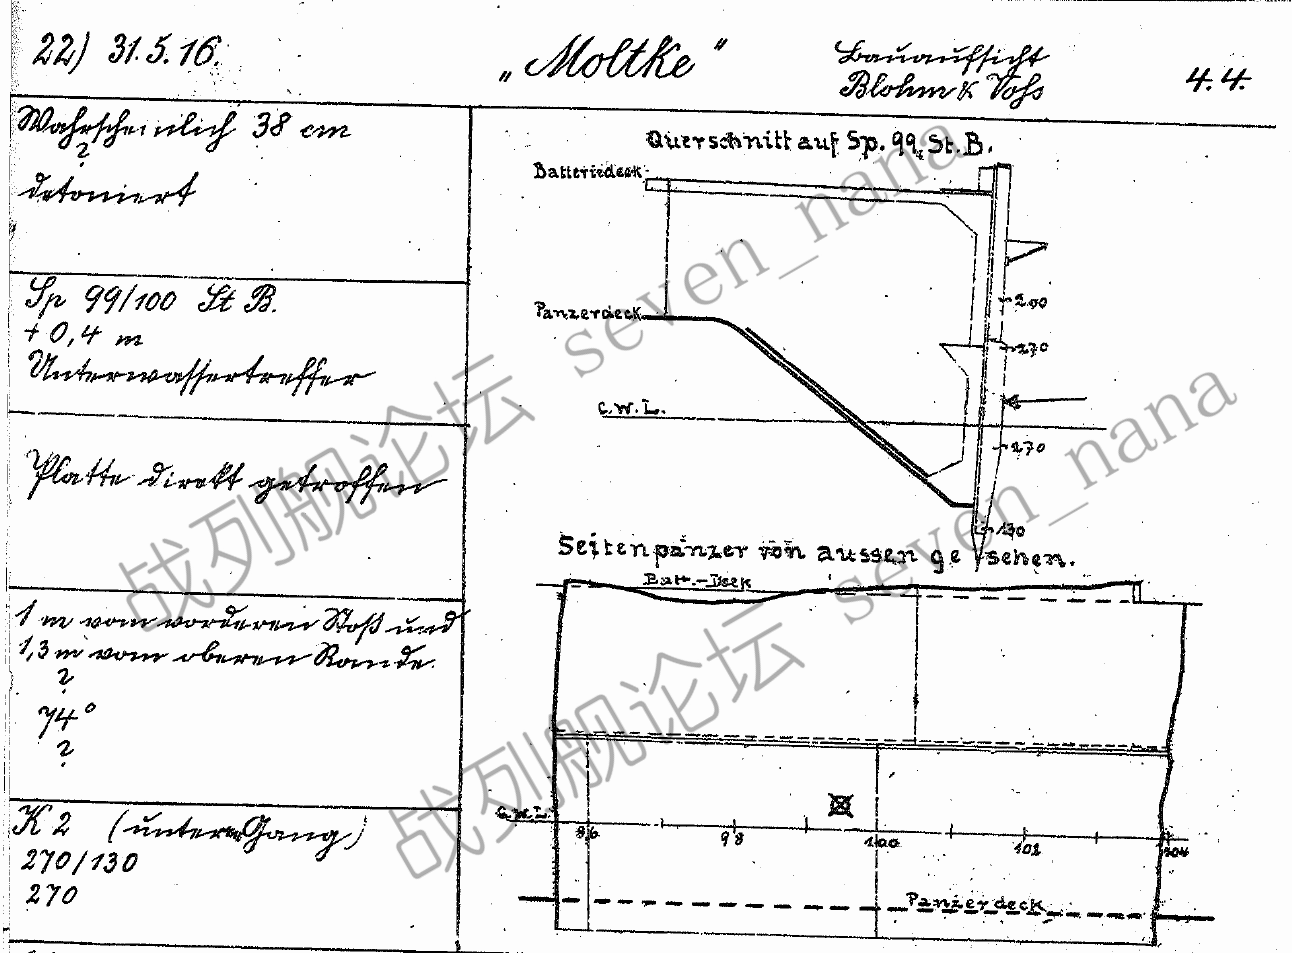 22) 31.5.16.
„Moltke“
Bauaufsicht
Blohm & Voss
4.4.
Wahrscheinlich 38 cm
?
detoniert
Sp 99/100 St B.
+ 0,4 m
Unterwassertreffer
Platte direkt getroffen
1 m vom vorderen Stoß und
1,3 m vom oberen Rande.
?
74°
?
K 2 (unterer Gang)
270/130
270
Querschnitt auf Sp. 99, St. B.
Batteriedeck
Panzerdeck
C.W.L.
200
270
270
130
Seitenpanzer von aussen gesehen.
Batt.-Deck
C.W.L.
96
98
100
102
104
Panzerdeck
战列舰论坛 seven_nana
战列舰论坛 seven_nana